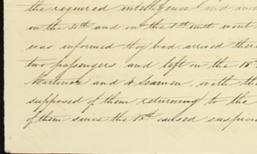 the required intelligence and
in the 31st and on the 1st inst went
was informed they had arrived there
two passengers and left on the 18th
Mariner and 4 Seamen, with the
supposed of them returning to the
of them since the 18th caused